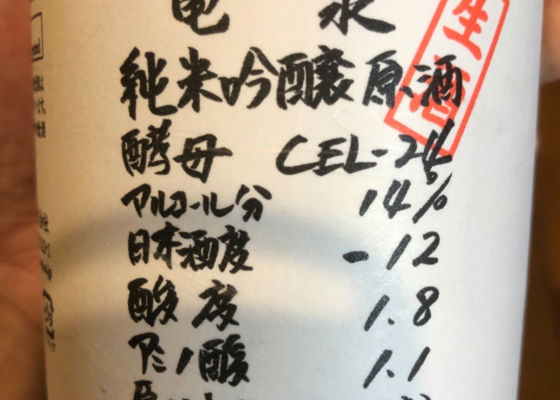 亀泉
純米吟醸原酒
生酒
酵母 CEL-24
アルコール分 14%
日本酒度 -12
酸度 1.8
アミノ酸 1.1